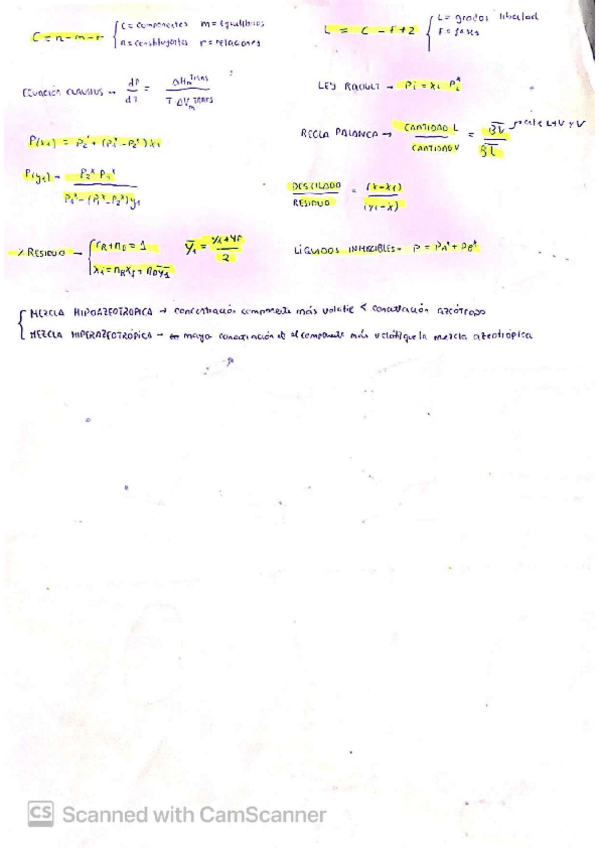 C = n - m - r { C = componentes m = equilibrios
n = constituyentes r = relaciones
L = C - F + 2 { L = grados libertad
F = fases
ECUACIÓN CLAUSIUS → dP/dT = ΔHm^TRANS / T ΔVm^TRANS
LEY RAOULT → Pi = xi Pi*
P(x1) = P2* + (P1* - P2*) x1
REGLA PALANCA → CANTIDAD L / CANTIDAD V = BV / BL
P(y1) = P2* P1* / P1* - (P1* - P2*) y1
DESTILADO / RESIDUO = (x - x1) / (y1 - x)
% RESIDUO → { nR + nD = 1
xi = nR x1 + nD y1
y1 = yi + yf / 2
LÍQUIDOS INMISCIBLES → P = PA* + PB*
{ MEZCLA HIPOAZEOTRÓPICA → concentración componente más volátil < concentración azeótropo
MEZCLA HIPERAZEOTRÓPICA → mayor concentración el componente más volátil que la mezcla azeotrópica
CS Scanned with CamScanner